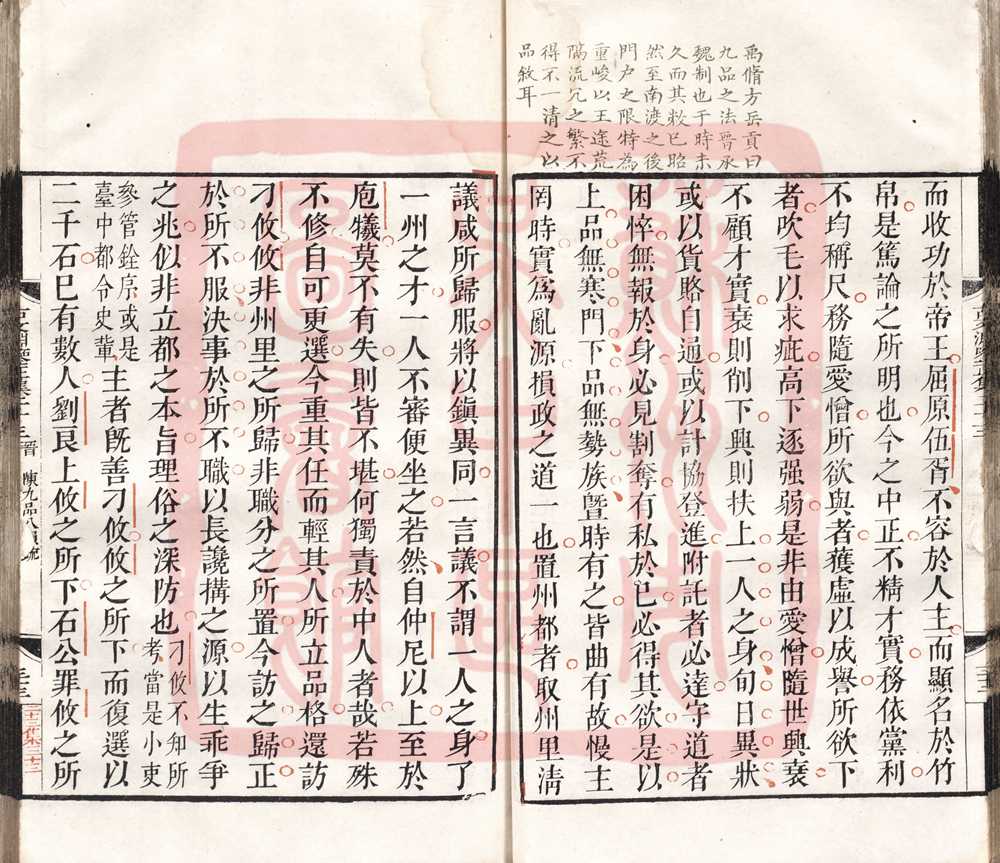 禹脩方岳貢曰
九品之法晉承
魏制也于時未
久而其敝已昭
然至南渡之後
門戶之限特為
重峻以王途荒
隔流冗之繁不
得不一清之以
品敘耳
而收功於帝王屈原伍胥不容於人主而顯名於竹
帛是篤論之所明也今之中正不精才實務依黨利
不均稱尺務隨愛憎所欲與者獲虛以成譽所欲下
者吹毛以求疵高下逐强弱是非由愛憎隨世興衰
不顧才實衰則削下興則扶上一人之身旬日異狀
或以貨賂自通或以計協登進附託者必達守道者
困悴無報於身必見割奪有私於已必得其欲是以
上品無寒門下品無勢族曁時有之皆曲有故慢主
罔時實爲亂源損政之道一也置州都者取州里淸
議咸所歸服將以鎭異同一言議不謂一人之身了
一州之才一人不審便坐之若然自仲尼以上至於
庖犧莫不有失則皆不堪何獨責於中人者哉若殊
不修自可更選今重其任而輕其人所立品格還訪
刁攸攸非州里之所歸非職分之所置今訪之歸正
於所不服決事於所不職以長讒搆之源以生乖爭
之兆似非立都之本旨理俗之深防也刁攸不知所
考當是小吏
參管銓序或是
臺中都令史輩主者旣善刁攸攸之所下而復選以
二千石巳有數人劉艮上攸之所下石公罪攸之所
晉
陳九品八損疏
二十三集